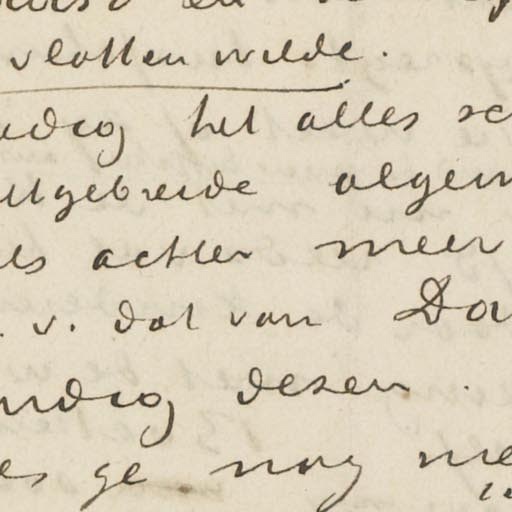 vlotten wilde.
het alles
uitgebreide algem
als achter meer
v. dat van Da
dezen.
ge nog me